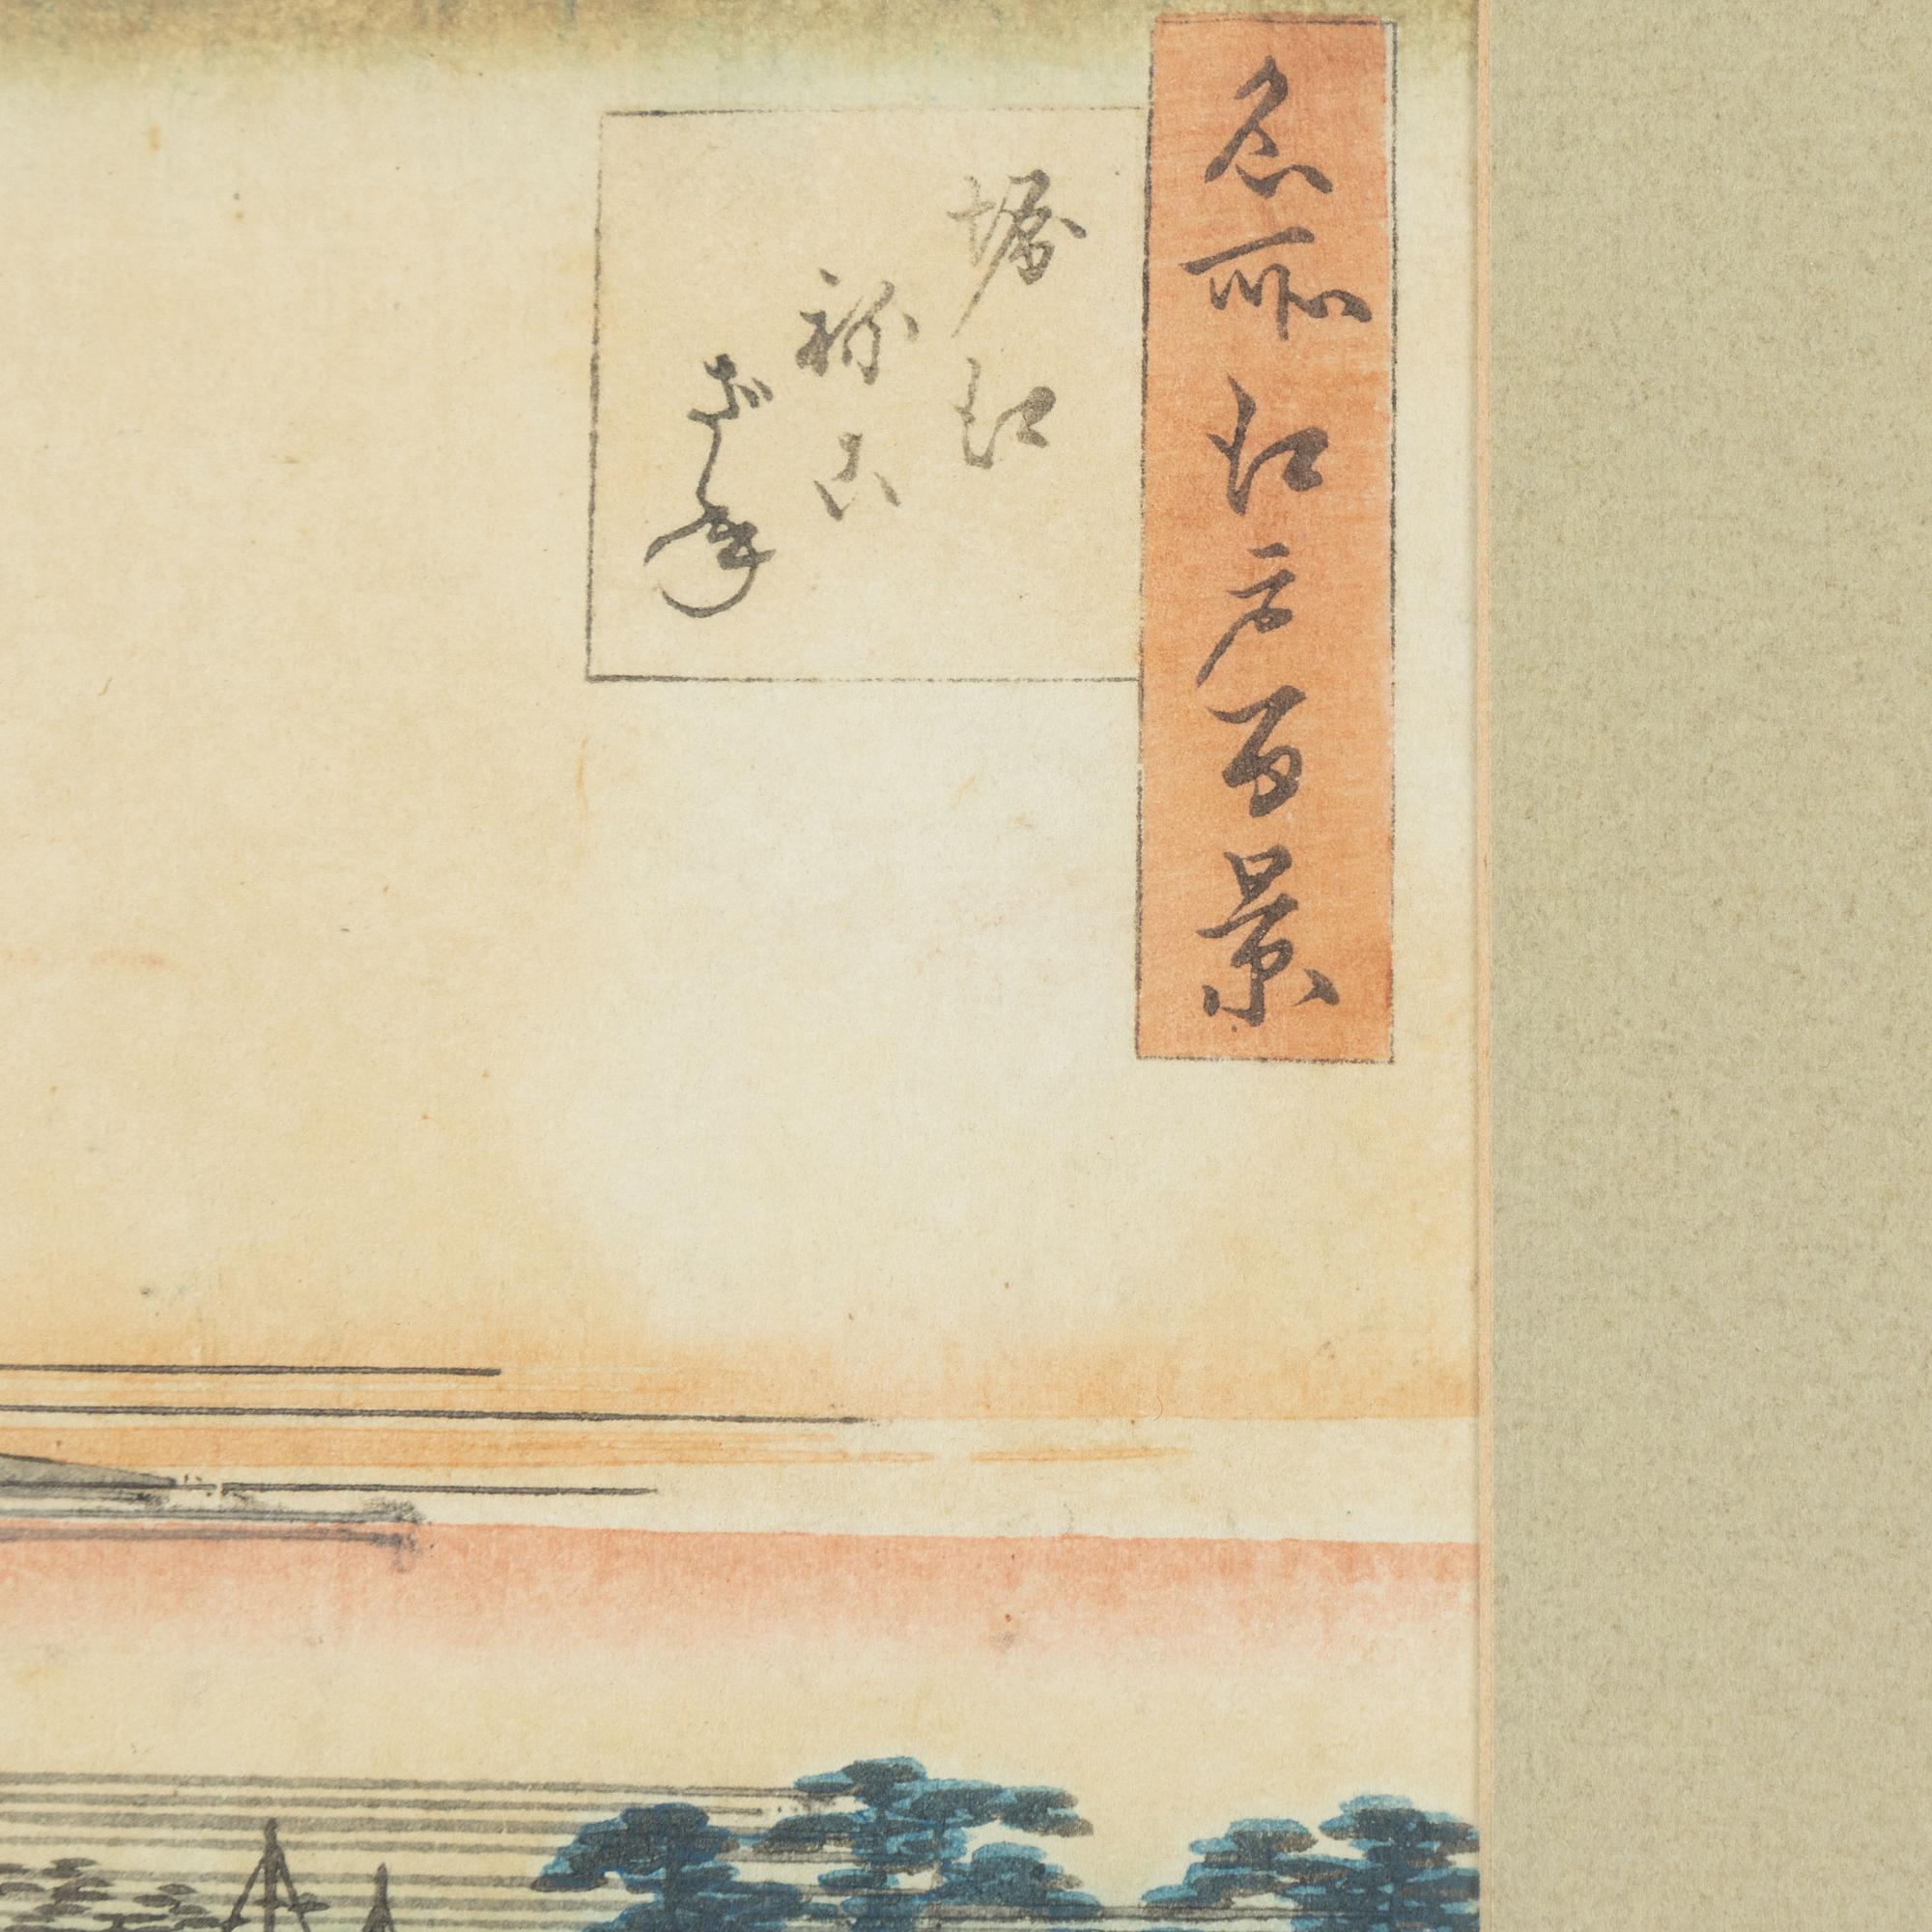 名所江戸百景
堀江
祢こ
ざね